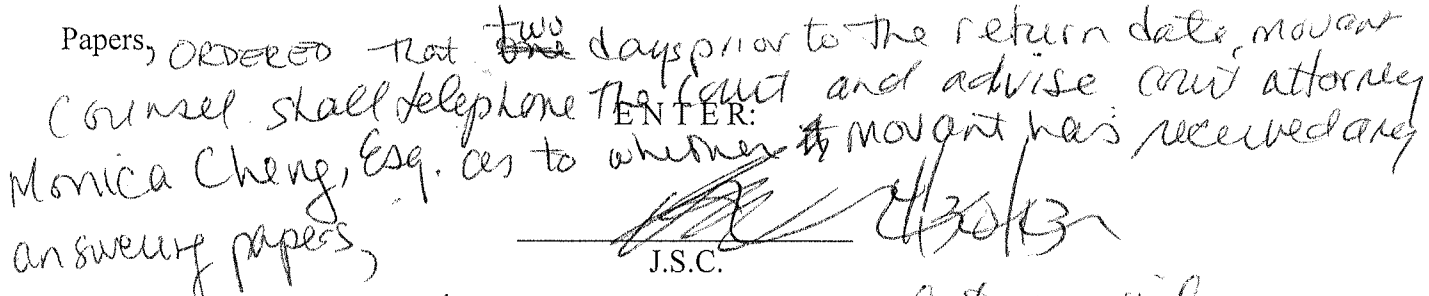 Papers, ORDERED that two days prior to the return date, movant
Counsel shall telephone the Court and advise court attorney
ENTER:
Monica Cheng, Esq. as to whether movant has received any
answering papers,
4/30/13
J.S.C.